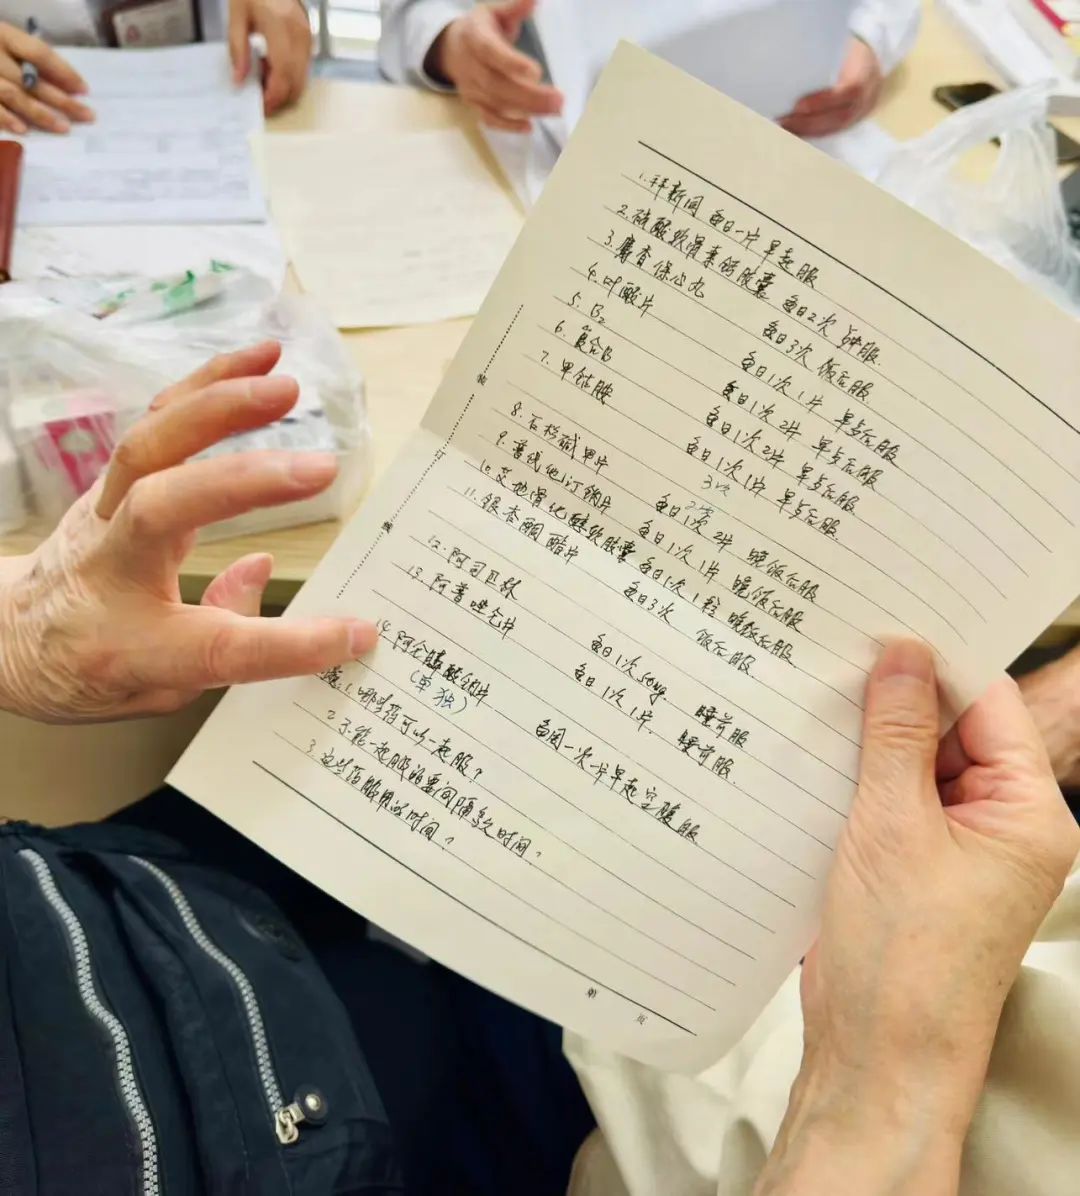 1. 拜新同 每日一片 早起服
2. 硫酸软骨素钙胶囊 每日2次 早晚服
3. 麝香保心丸 每日3次 饭后服
4. 叶酸片 每日1次 1片 早点后服
5. B₂ 每日1次 2片 早点后服
6. 复合B 每日1次 2片 早点后服
7. 甲钴胺 每日1次 1片 早点后服
3次
8. 石杉碱甲片 每日1次 2片 晚饭后服
9. 普伐他汀钠片 每日1次 1片 晚饭后服
10. 艾地骨化醇软胶囊 每日1次 1粒 晚饭后服
11. 银杏酮酯片 每日3次 饭后服
12. 阿司匹林 每日1次 50mg 睡前服
13. 阿普唑仑片 每日1次 1片. 睡前服.
14. 阿仑膦酸钠片 每周一次一片早起空腹服
(单独)
1. 哪些药可以一起服?
2. 不能一起服的要间隔多久时间?
3. 这些药服用的时间?
装
订
线
第
页